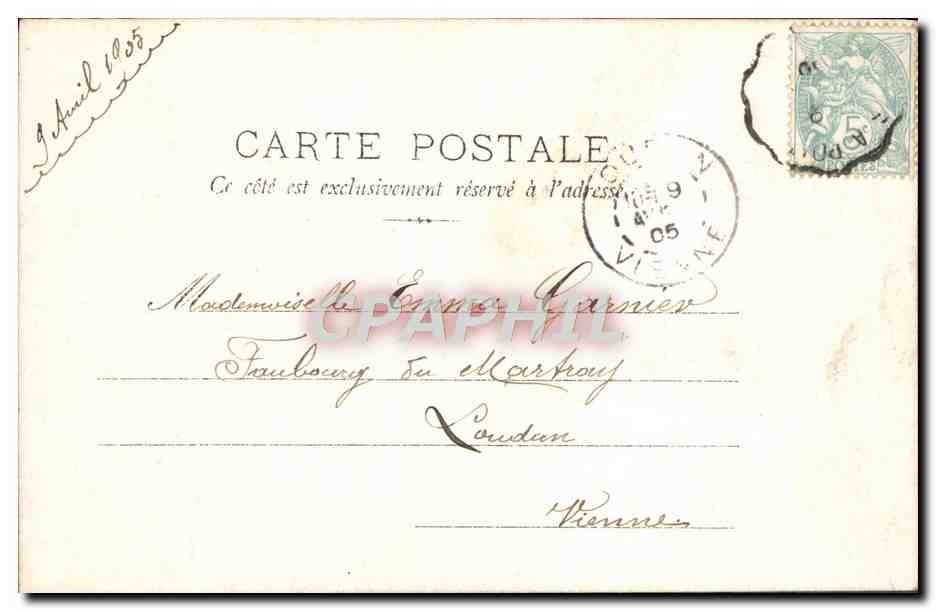 9 Avril 1905
CARTE POSTALE
Ce côté est exclusivement réservé à l'adresse
9
05
VIENNE
5
POSTES
CPAPHIL
Mademoiselle Emma Garnier
Faubourg du Martray
Loudun
Vienne